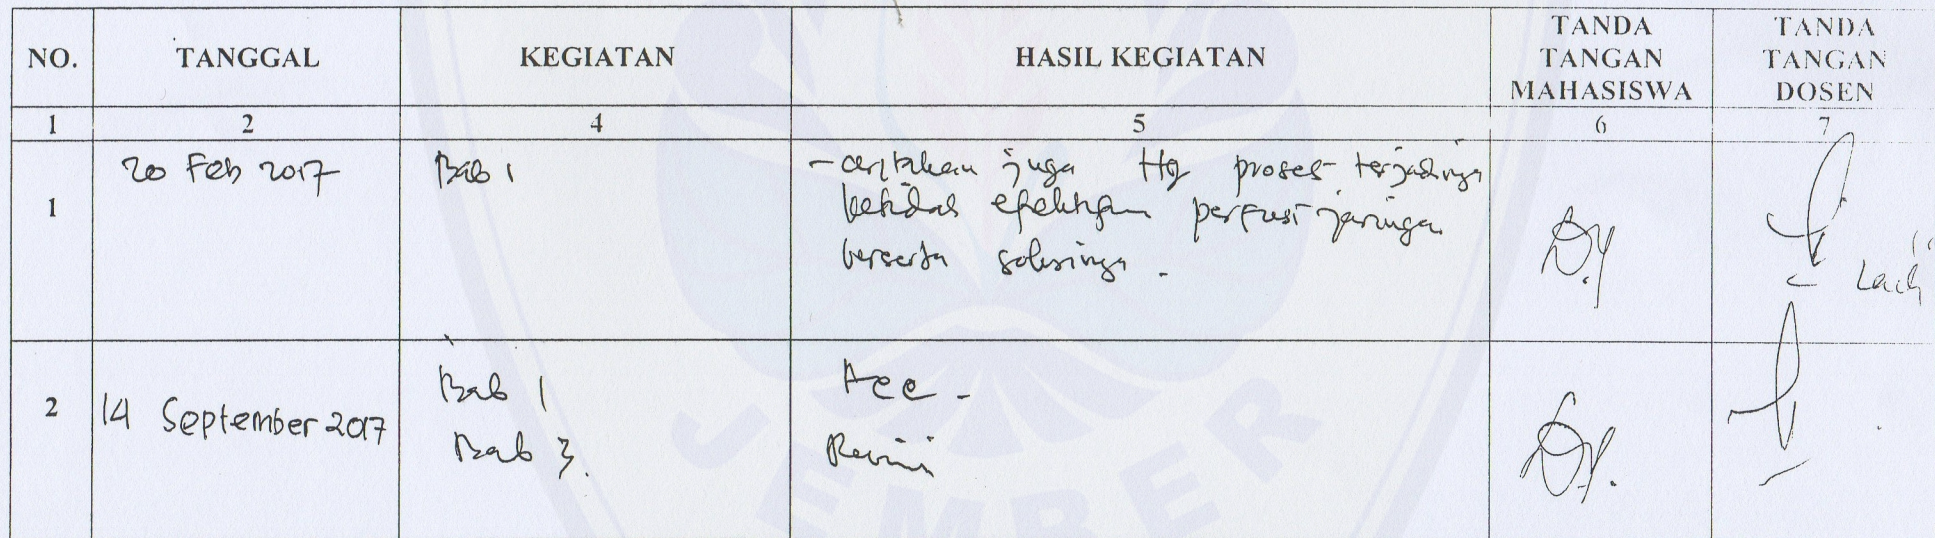 NO. TANGGAL KEGIATAN HASIL KEGIATAN TANDA TANGAN MAHASISWA TANDA TANGAN DOSEN
1 2 4 5 6 7
1 20 Feb 2017 Bab 1 - ceritakan juga ttg proses terjadinya
ketidak efektifan perfusi jaringan
berserta solusinya.
2 14 September 2017 Bab 1 Acc -
Bab 3. Revisi
JEMBER